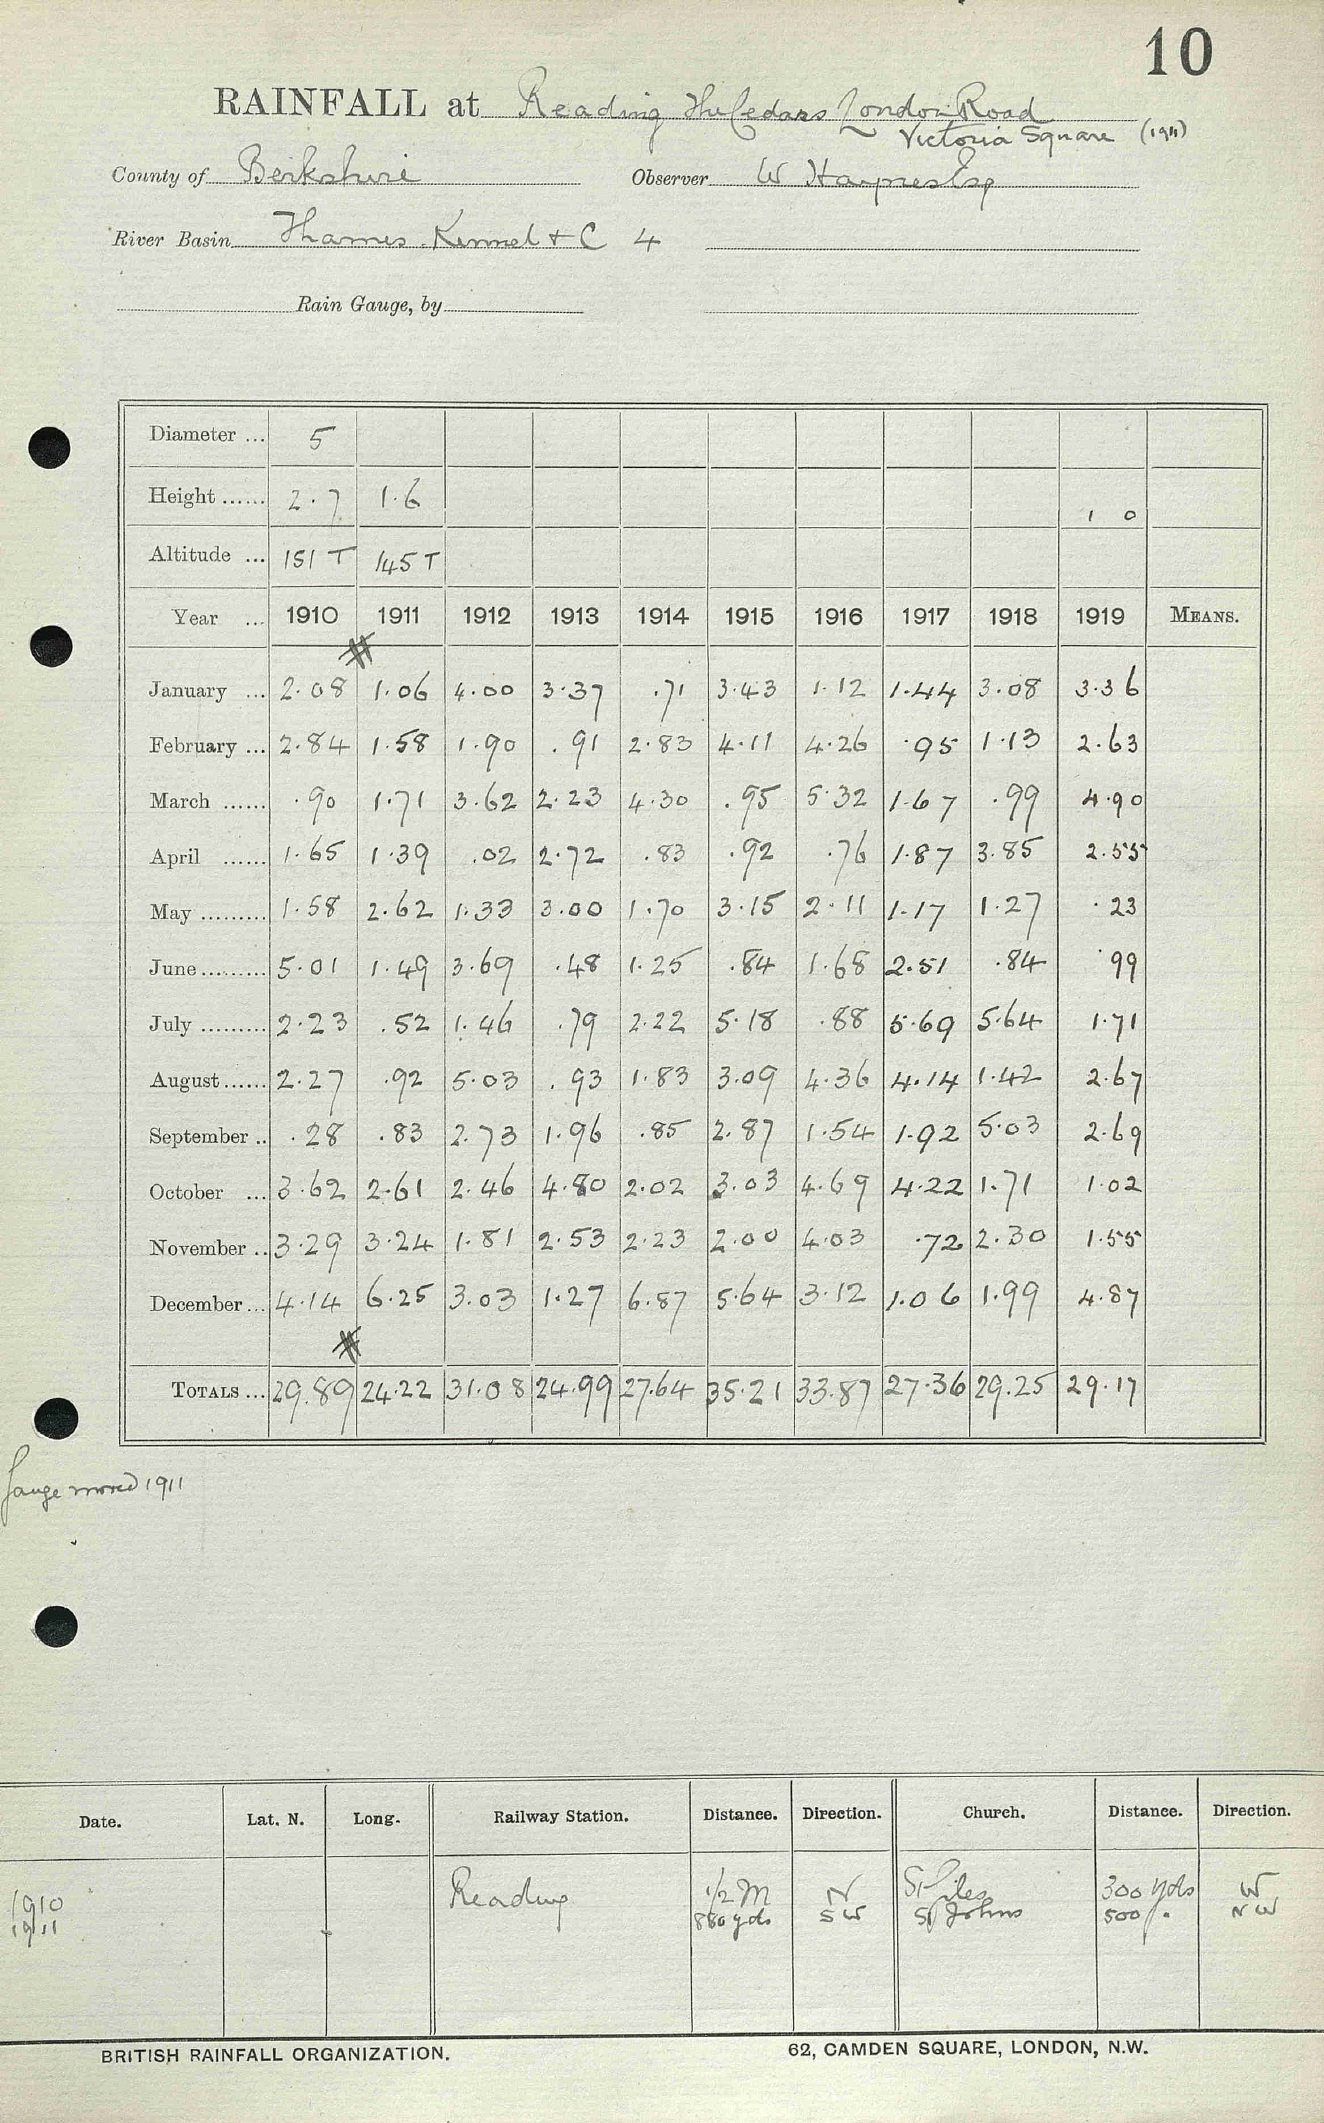 10
RAINFALL at Reading The Cedars London Road
Victoria Square (1911)
County of Berkshire Observer W Haynes Esq
River Basin Thames. Kennet & C 4
Rain Gauge, by
Diameter ... 5
Height ...... 2.7 1.6 1 0
Altitude ... 151 T 145 T
Year ... 1910 1911 1912 1913 1914 1915 1916 1917 1918 1919 MEANS.
January ... 2.08 1.06 4.00 3.37 .71 3.43 1.12 1.44 3.08 3.36
February ... 2.84 1.58 1.90 .91 2.83 4.11 4.26 .95 1.13 2.63
March ...... .90 1.71 3.62 2.23 4.30 .95 5.32 1.67 .99 4.90
April ...... 1.65 1.39 .02 2.72 .83 .92 .76 1.87 3.85 2.55
May ......... 1.58 2.62 1.33 3.00 1.70 3.15 2.11 1.17 1.27 .23
June ......... 5.01 1.49 3.69 .48 1.25 .84 1.68 2.51 .84 .99
July ......... 2.23 .52 1.46 .79 2.22 5.18 .88 5.69 5.64 1.71
August ...... 2.27 .92 5.03 .93 1.83 3.09 4.36 4.14 1.42 2.67
September .. .28 .83 2.73 1.96 .85 2.87 1.54 1.92 5.03 2.69
October ... 3.62 2.61 2.46 4.80 2.02 3.03 4.69 4.22 1.71 1.02
November .. 3.29 3.24 1.81 2.53 2.23 2.00 4.03 .72 2.30 1.55
December ... 4.14 6.25 3.03 1.27 6.87 5.64 3.12 1.06 1.99 4.87
TOTALS ... 29.89 24.22 31.08 24.99 27.64 35.21 33.87 27.36 29.25 29.17
Gauge moved 1911
Date. Lat. N. Long. Railway Station. Distance. Direction. Church. Distance. Direction.
1910 Reading 1/2 M N St Giles 300 yds W
1911 880 yds SW St Johns 500 " NW
BRITISH RAINFALL ORGANIZATION. 62, CAMDEN SQUARE, LONDON, N.W.